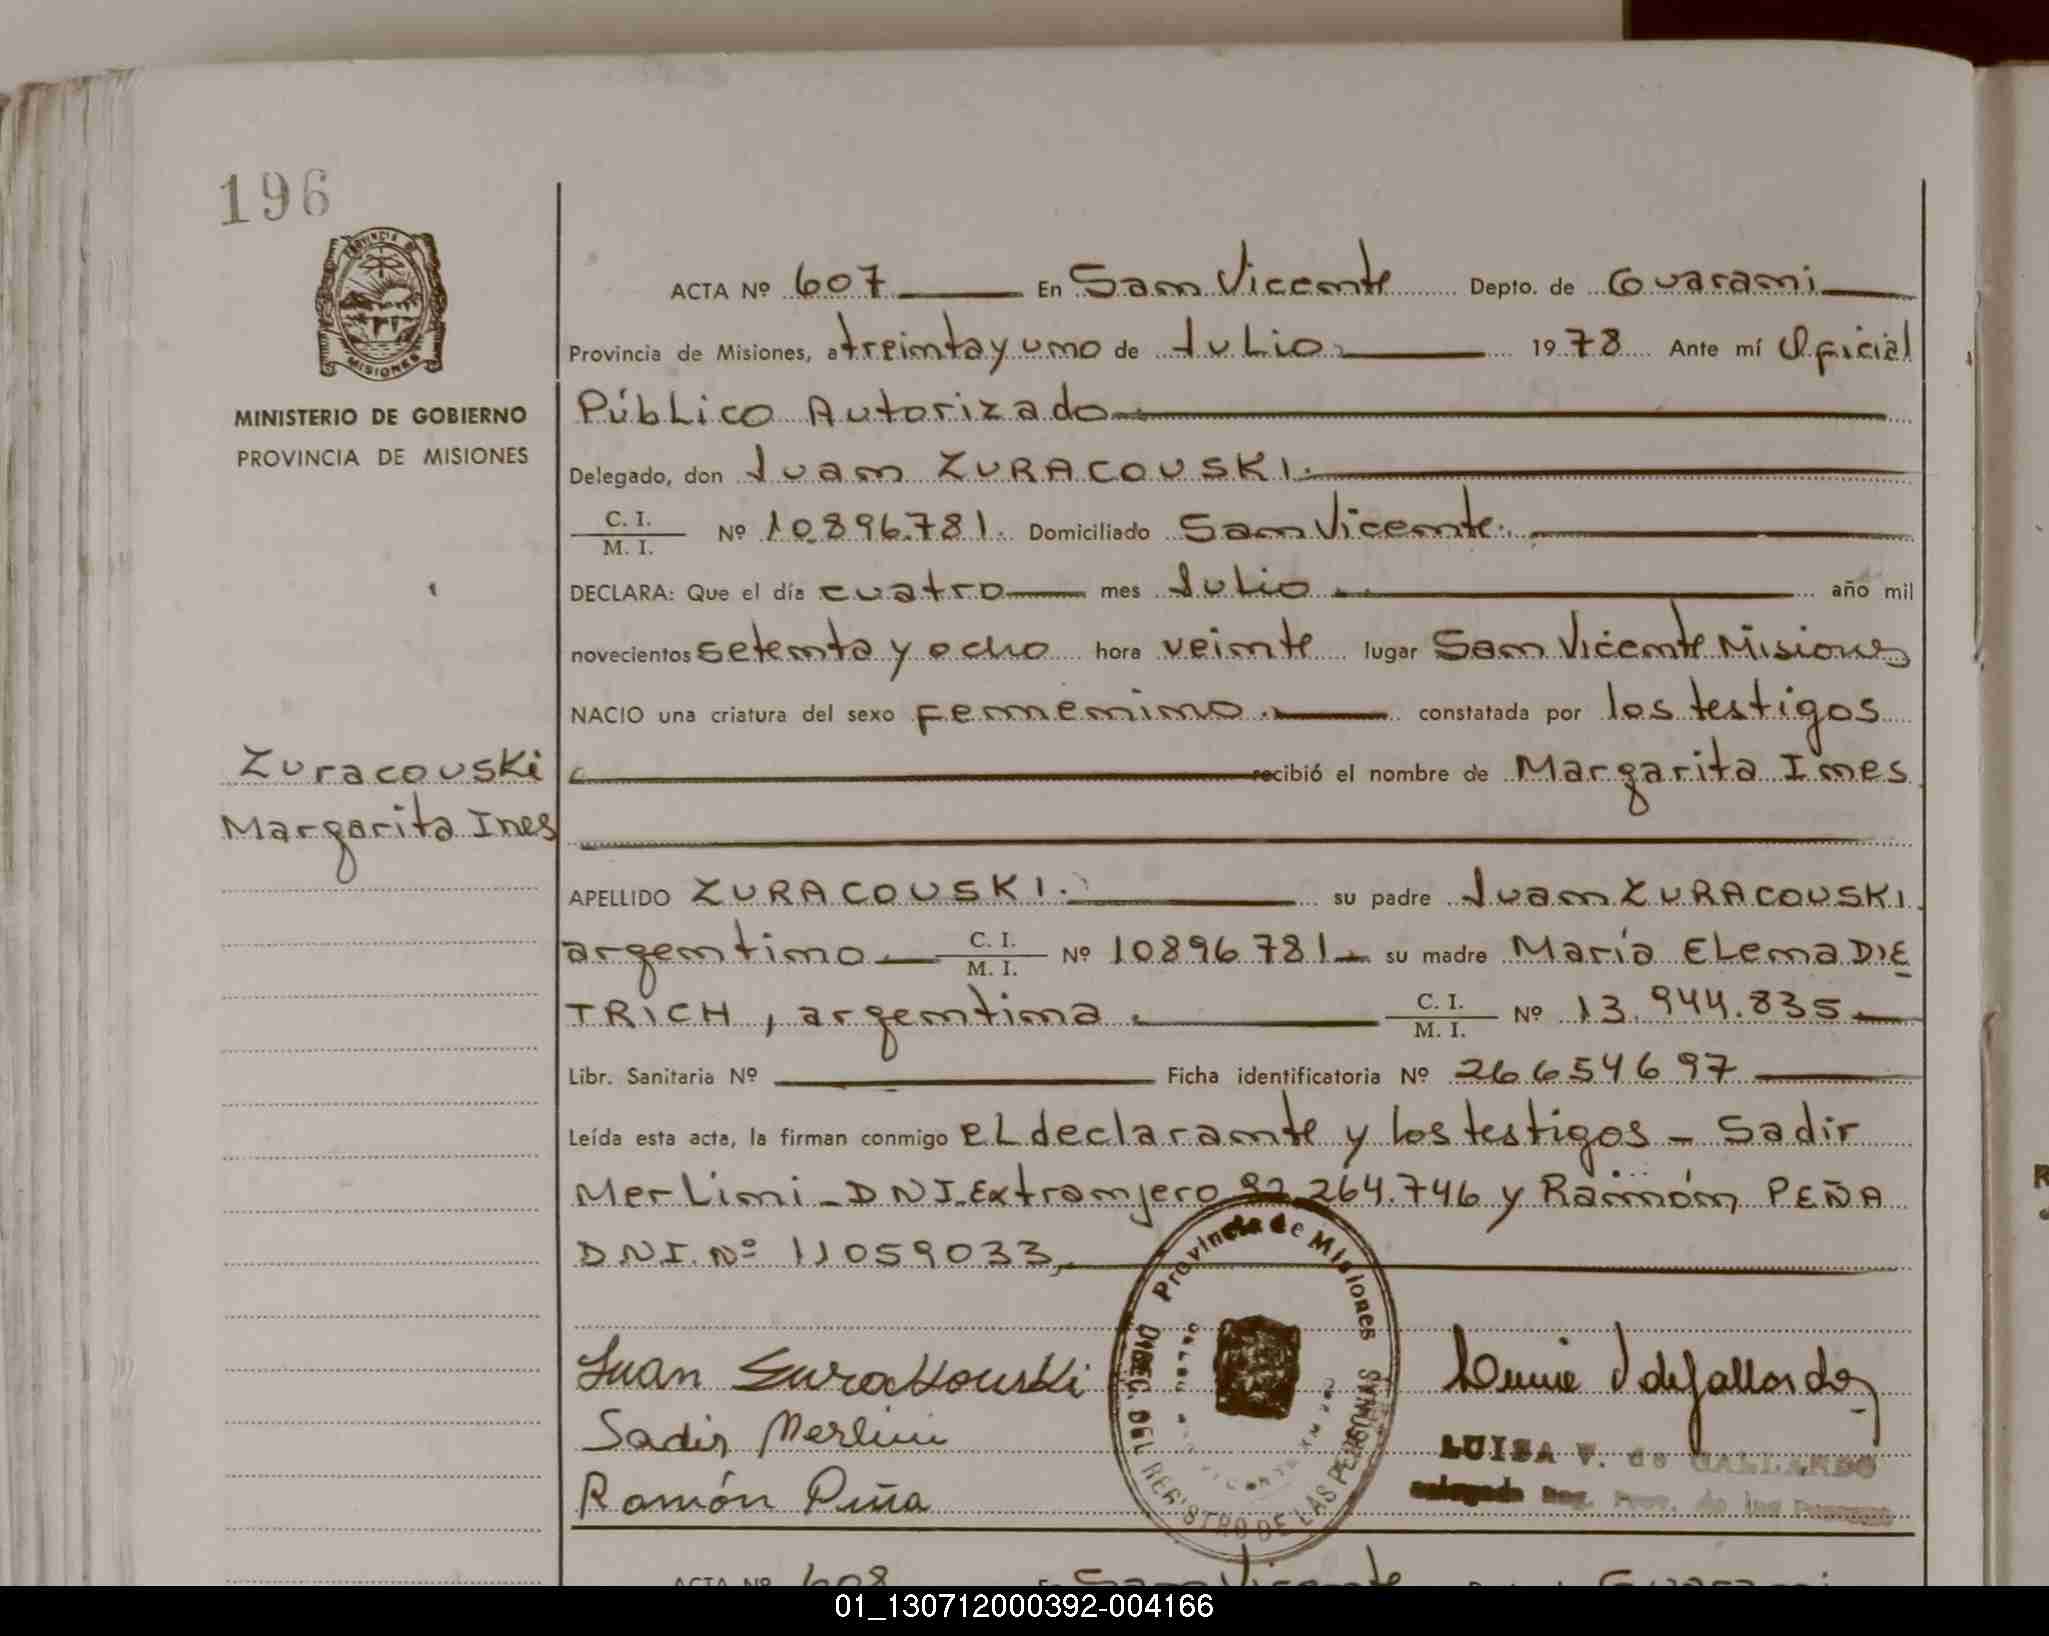 196
PROVINCIA DE
MISIONES
MINISTERIO DE GOBIERNO
PROVINCIA DE MISIONES
ACTA Nº 607 En San Vicente Depto. de Guarani
Provincia de Misiones, a treinta y uno de Julio 1978 Ante mí Oficial
Público Autorizado
Delegado, don Juan ZURACOUSKI.
C. I.
M. I. Nº 10.896.781. Domiciliado San Vicente.
DECLARA: Que el día cuatro mes Julio año mil
novecientos setenta y ocho hora veinte lugar San Vicente Misiones
NACIO una criatura del sexo femenino. constatada por los testigos
recibió el nombre de Margarita Ines
Zuracouski
Margarita Ines
APELLIDO ZURACOUSKI. su padre Juan ZURACOUSKI
argentino C. I.
M. I. Nº 10896781 su madre María Elena DIE
TRICH, argentina. C. I.
M. I. Nº 13.944.835
Libr. Sanitaria Nº Ficha identificatoria Nº 26654697
Leída esta acta, la firman conmigo el declarante y los testigos - Sadir
Merlini - DNI. Extranjero 92.264.746 y Ramón PEÑA
DNI. Nº 11059033,
Juan Zurakouski
Sadir Merlini
Ramón Peña
Provincia de Misiones
DIREC. DEL REGISTRO DE LAS PERSONAS
LUISA V. de GALLARDO
Delegada Reg. Prov. de las Personas
ACTA Nº 608 En San Vicente Depto. de Guarani
01_130712000392-004166